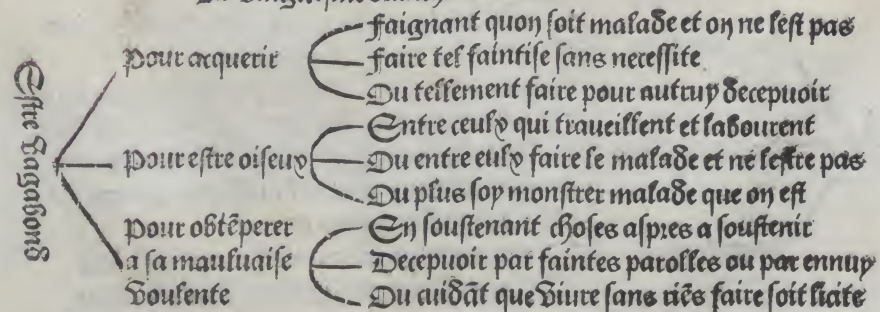 Estre Vagabond
Pour acquerir
Faignant quon soit malade et on ne lest pas
Faire tel faintise sans necessite
Ou tellement faire pour autruy decepuoir
Pour estre oiseux
Entre ceulx qui traueillent et labourent
Ou entre eulx faire le malade et ne lestre pas
Ou plus soy monstrer malade que on est
Pour obtẽperer
a sa mauluaise
Voulente
En soustenant choses aspres a soustenir
Decepuoir par faintes parolles ou par ennuy
Ou cuidãt que viure sans riẽs faire soit licite